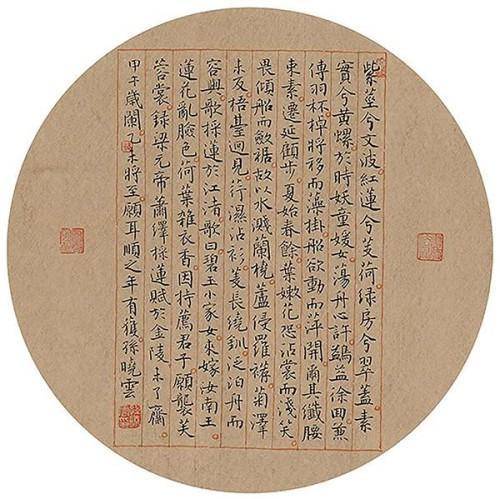 紫莖兮文波紅蓮兮芰荷綠房兮翠蓋素
實兮黃螺於時妖童媛女蕩舟心許鷁首徐回兼
傳羽杯棹將移而藻掛船欲動而萍開爾其纖腰
束素遷延顧步夏始春餘葉嫩花恐沾裳而淺笑
畏傾船而斂裾故以水濺蘭橈蘆侵羅襪菊澤
未反梧臺迥見荇濕沾衫菱長繞釧泛泊舟而
容與歌採蓮於江渚歌曰碧玉小家女來嫁汝南王
蓮花亂臉色荷葉雜衣香因持薦君子願襲芙
蓉裳錄梁元帝蕭繹採蓮賦於金陵未了齋
甲午歲闌乙未將至願耳順之年有獲孫曉雲